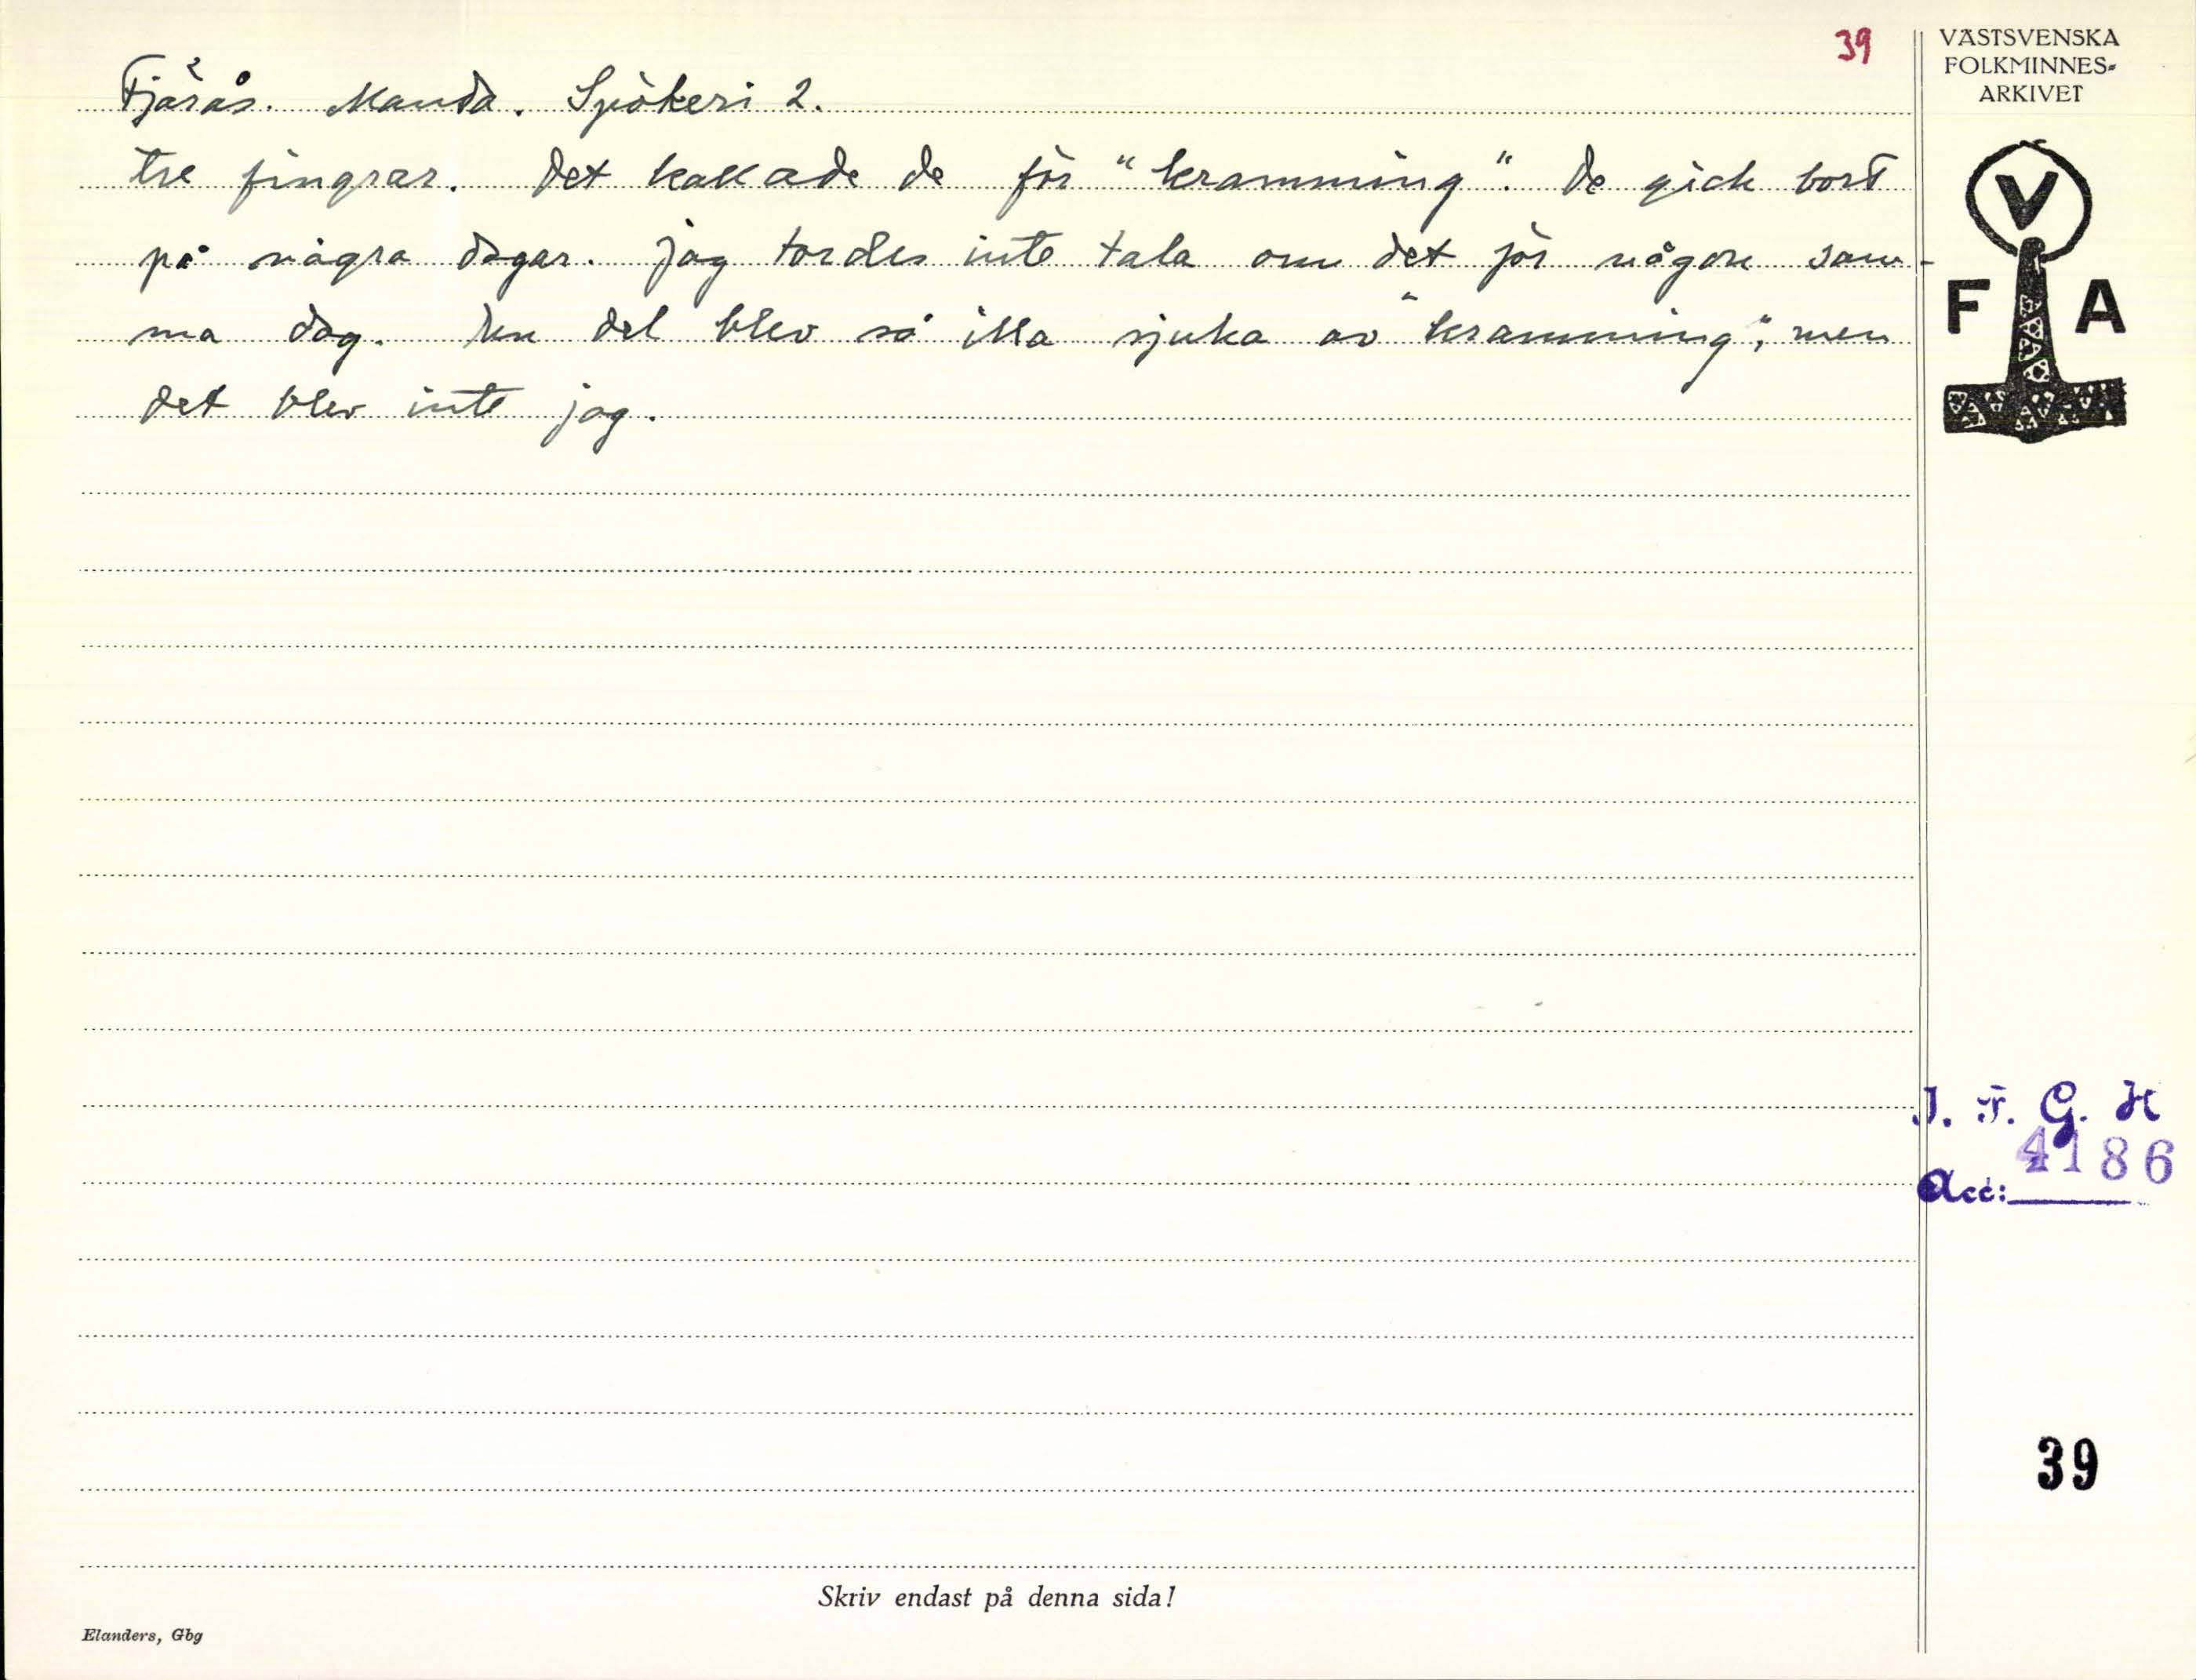 39
VÄSTSVENSKA
FOLKMINNES-
ARKIVET
Fjärås. Manda. Spökeri 2.
tre fingrar. Det kallade de för "kramming". De gick bort
på några dagar. Jag tordes inte tala om det för någon sam-
ma dag. En del blev så illa sjuka av "kramming", men
det blev inte jag.
V
F A
I. F. G. H
4186
Acc:
39
Skriv endast på denna sida!
Elanders, Gbg